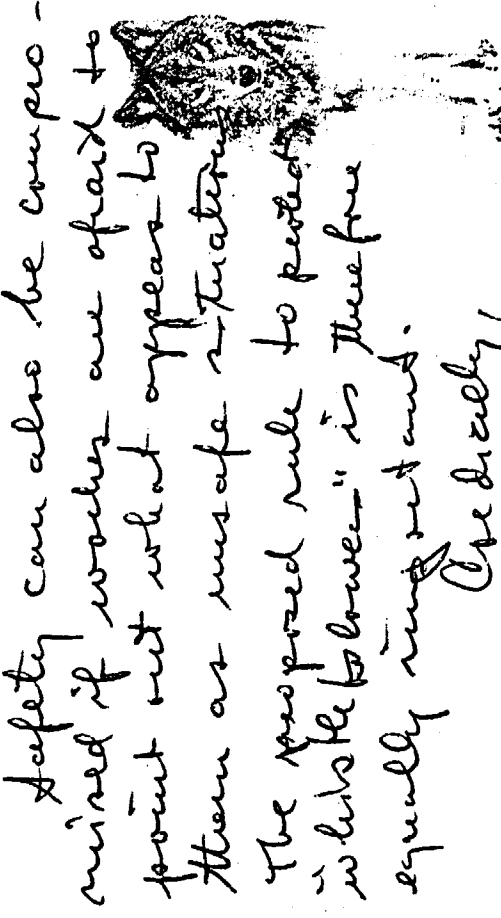 Safety can also be compro-
mised if workers are afraid to
point out what appears to
them as unsafe situations
The proposed rule to protect
"whistleblowers" is therefore
equally important.
Cordially,